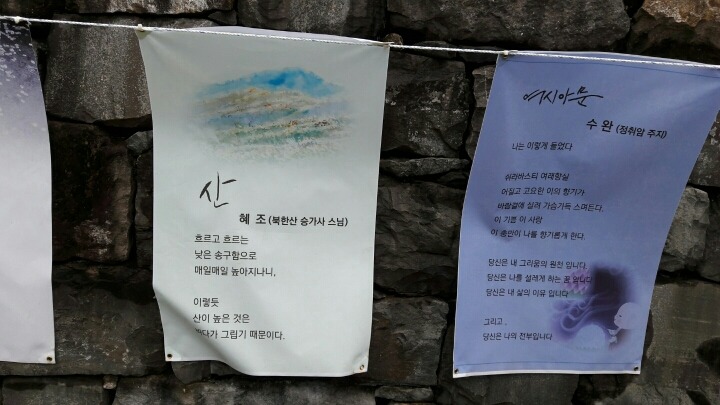 산
혜 조 (북한산 승가사 스님)
흐르고 흐르는
낮은 송구함으로
매일매일 높아지나니,
이렇듯
산이 높은 것은
바다가 그립기 때문이다.
여시아문
수 완 (정취암 주지)
나는 이렇게 들었다
쉬라바스티 여래향실
어질고 고요한 이의 향기가
바람결에 실려 가슴가득 스며든다.
이 기쁨 이 사랑
이 충만이 나를 향기롭게 한다.
당신은 내 그리움의 원천 입니다
당신은 나를 설레게 하는 꿈 입니다
당신은 내 삶의 이유 입니다
그리고 ,
당신은 나의 전부입니다